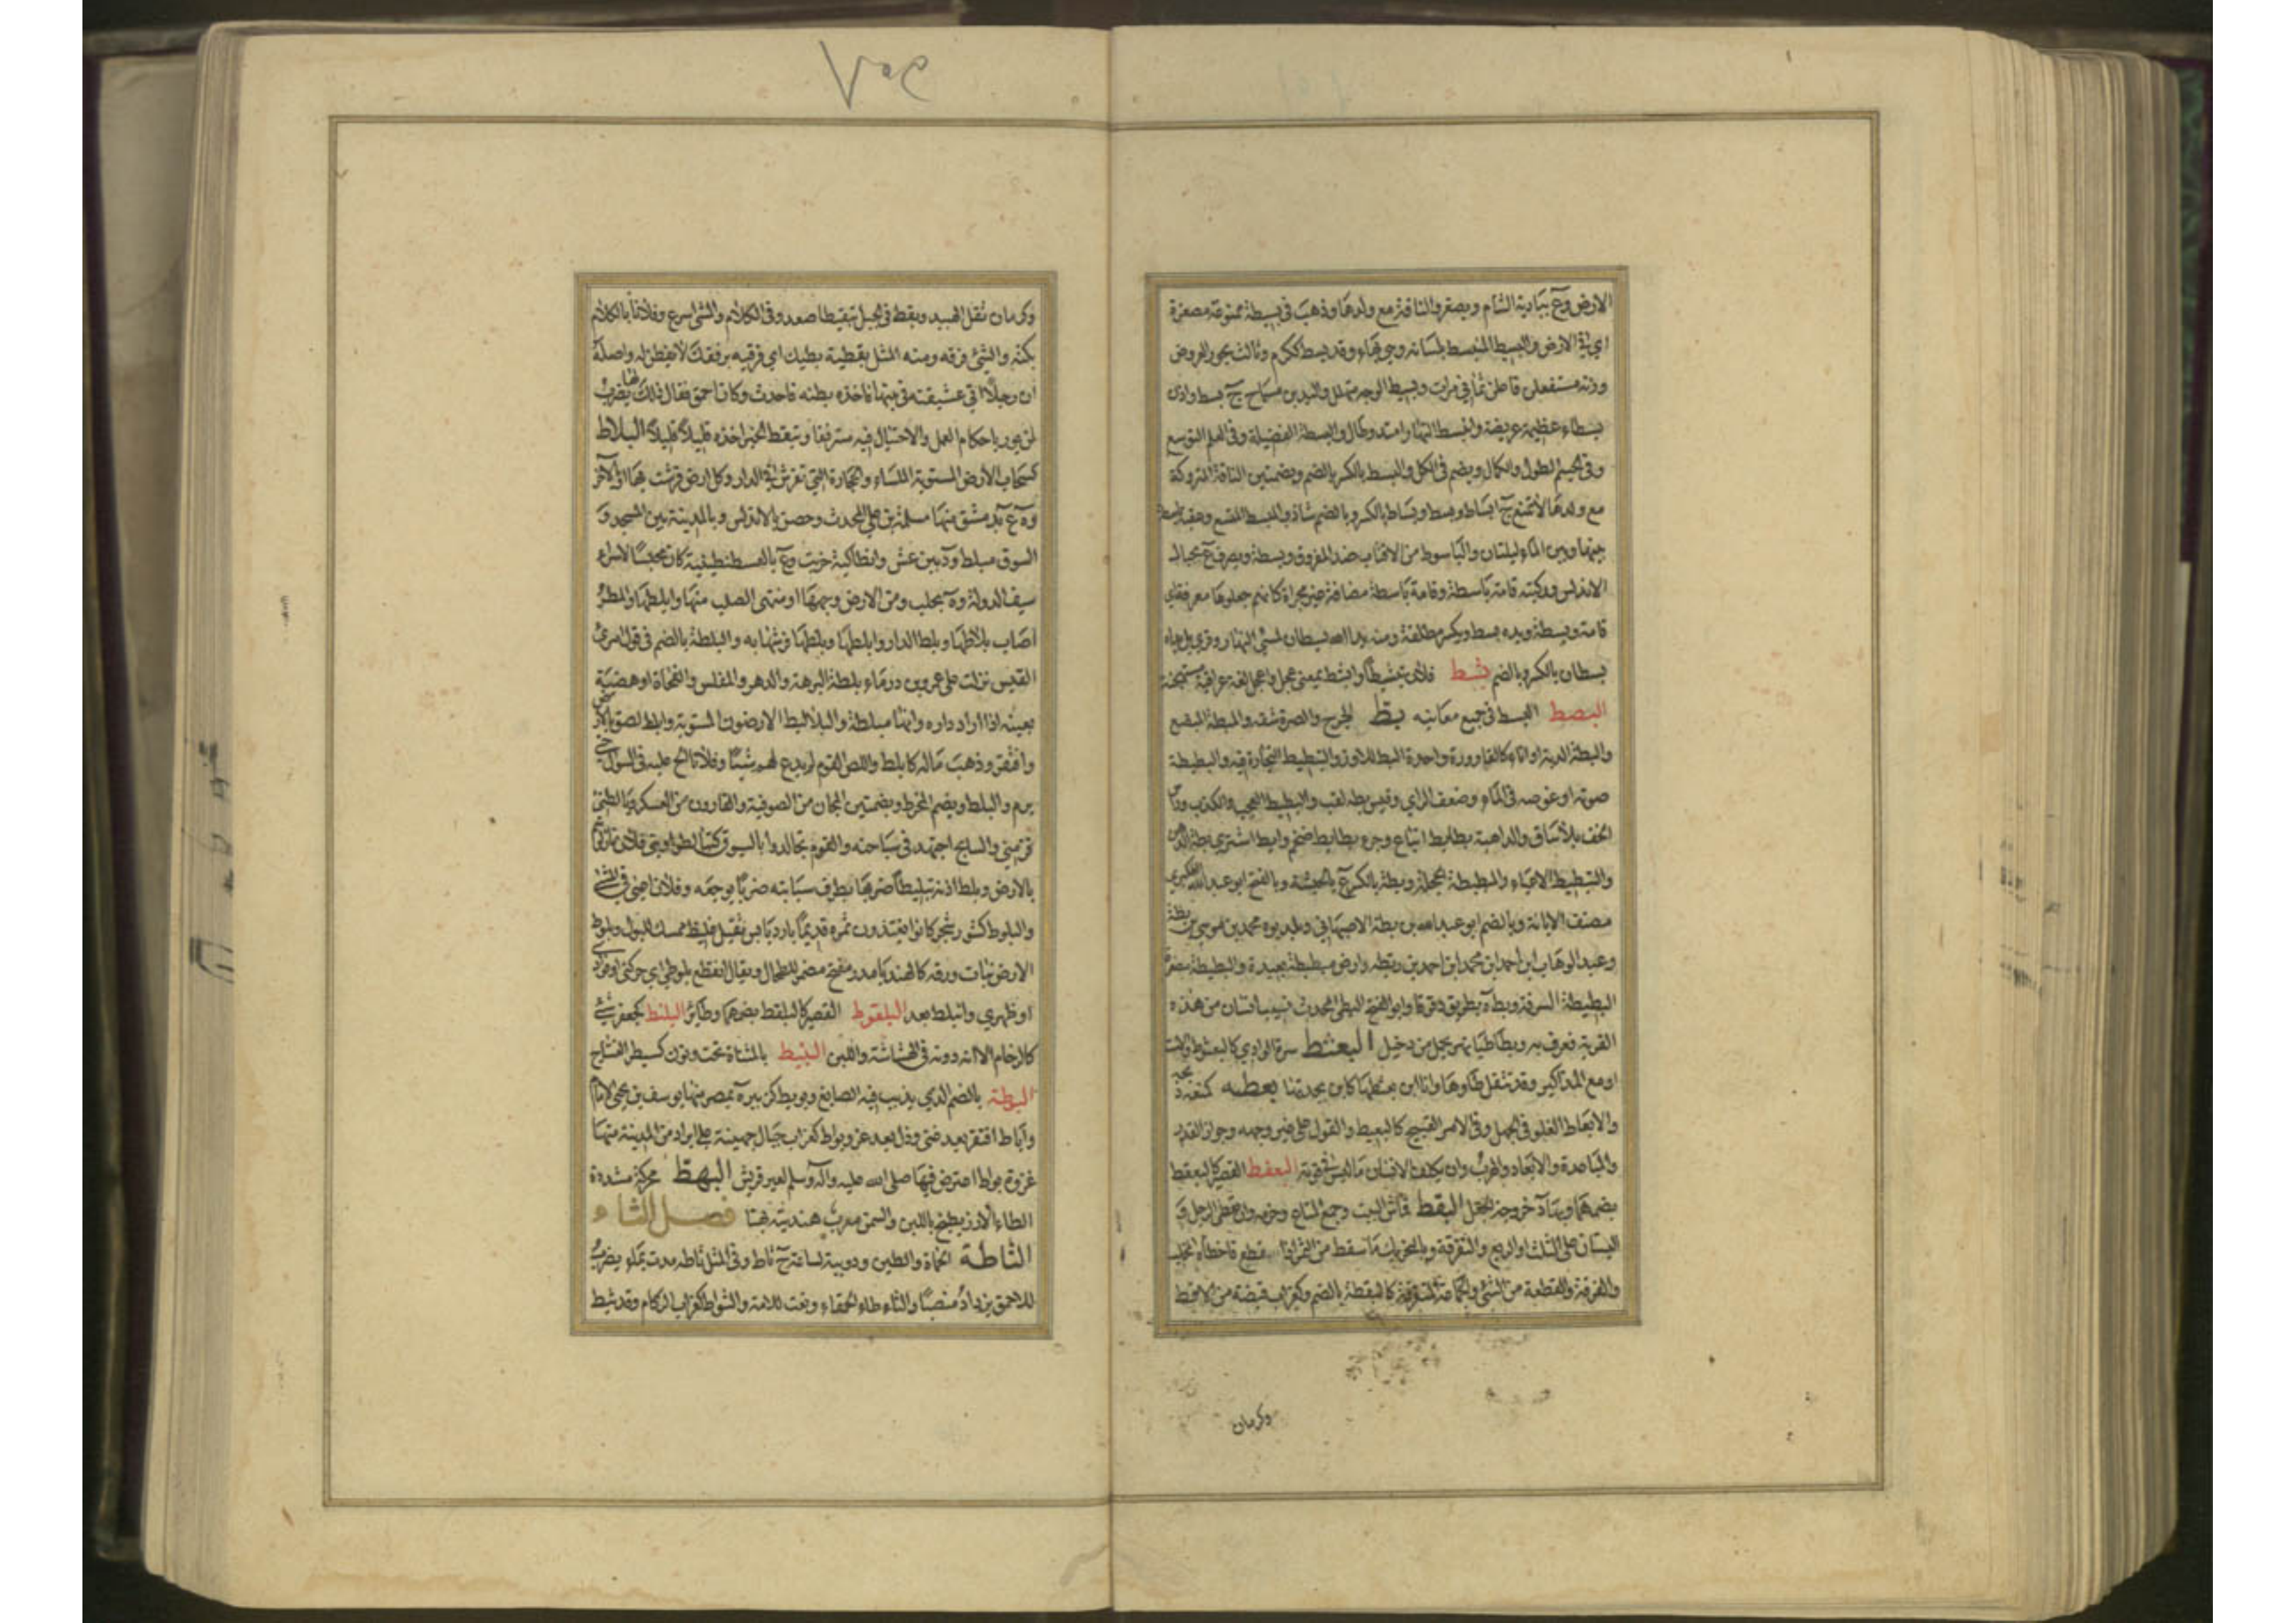 الارض وع ببادية الشام ويصغر والناقة مع ولدها وذهب في بسيطة ممنوعة مصغرة
اي في الارض والبسيط المنبسط بلسانه وهي بهاء وقد بسط ككرم وثالث بحور العروض
وزنه مستفعلن فاعلن ثماني مرات وبسيط الوجه متهلل واليدين مسماح ج بسط واذن
بسطاء عظيمة عريضة وانبسط النهار امتد وطال والبسطة الفضيلة وفي العلم التوسع
وفي الجسم الطول والكمال ويضم في الكل والبسط بالكسر بالضم وبضمتين الناقة المتروكة
مع ولدها لا تمنع ج ابساط وبسط وبساط بالكسر وبالضم شاذ والمبسط المتسع وعقبة باسطة
بينها وبين الماء ليلتان والباسوط من الاقتاب ضد المفروق وبسطة ويصرف ع بجيان
الاندلس وركيته قامة باسطة وقامة باسطة مضافة غير مجراة كانهم جعلوها معرفة اي
قامة وبسطة ويده بسط ويكسر مطلقة ومنه يدا الله بسطان لمسئ النهار وقرئ بل يداه
بسطان بالكسر وبالضم بشط فلان تبشيطا وابشط بمعنى عجل واعجل لغة عراقية مستهجنة
البصط البسط في جميع معانيه بط الجرح والصرة شقه والمبطة المبضع
والبطة الدبة او اناء كالقارورة وواحدة البط للاوز والتبطيط التجارة فيه والبطبطة
صوته او غوصه في الماء وضعف الراي وقيس بطة لقب والبطيط العجب والكذب وراس
الخف بلا ساق والداهية بطابط اتباع وجرو بطابط ضخم وابط اشترى بطة الدهن
والتبطيط الاعياء والمبطبطة الحجلة وبطة بالكسر ع بالحبشة وبالفتح ابو عبد الله العكبري
مصنف الابانة وبالضم ابو عبد الله بن بطة الاصبهاني وبلديوه محمد بن موسى بن بطة
وعبد الوهاب ابن احمد ابن محمد ابن احمد بن بطة وارض مبطبطة بعيدة والبطيطة مصغرة
البطيطة السرفة وبط ة بطريق دقوقا وابو الفتح البطي المحدث نسيب انسان من هذه
القرية فعرف به وبطاطيا نهر يحمل من دجيل البعثط سرة الوادي كالبعثوط والاست
او مع المذاكير وقد تثقل طاؤها وانا ابن بعثطها كابن بجدتها بعطه كمنعه ذبحه
والابعاط الغلو في الجهل وفي الامر القبيح كالبعيط والقول على غير وجهه وجواز القدر
والمباعدة والابعاد والهرب وان يكلف الانسان ما ليس في قوته البعقط القصير كالبعقط
بضمهما وبهاء دحروجة الجعل البقط قماش البيت وجمع المتاع وحزمه وان تعطي الرجل
البستان على الثلث او الربع والتفرقة وبالتحريك ما سقط من الثمر اذا قطع فاخطاه المخلب
والفرقة والقطعة من الشئ والجماعة المتفرقة كالبقطة بالضم وكغراب قبضة من الاقط
وكرمان
وكرمان ثقل الهبيد وبقط في الجبل تبقيطا صعد وفي الكلام والمشي اسرع وفلانا بالكلام
بكته والشئ فرقه ومنه المثل بقطيه بطبك اي فرقيه برفقك لا يفطن له واصله
ان رجلا اتى عشيقته في بيتها فاخذه بطنه فاحدث وكان احمق فقال ذلك لها يضرب
لمن يؤمر باحكام العمل والاحتيال فيه مترفقا وتبقط الخبر اخذه قليلا قليلا البلاط
كسحاب الارض المستوية الملساء والحجارة التي تفرش في الدار وكل ارض فرشت بها او بالآجر
وة ع بدمشق منها مسلمة بن علي المحدث وحصن بالاندلس وبالمدينة بين المسجد و
السوق مبلط ود بين مرعش وانطاكية خربت وع بالقسطنطينية كان محبسا لاسراء
سيف الدولة وة بحلب ومن الارض وجهها او منتهى الصلب منها وابلطها المطر
اصاب بلاطها وبلط الدار وابلطها وبلطها فرشها به والبلطة بالضم في قول امرئ
القيس نزلت على عمرو بن درماء بلطة البرهة والدهر والمفلس والفجاة او هضبة
بعينه اذا اراد داره وانها مبلطة والبلاليط الارضون المستوية وابلط لصق بالارض
وافتقر وذهب ماله كابلط واللص القوم لم يدع لهم شيئا وفلانا الح عليه في السؤال حتى
برم والبلط ويضم المخرط وبضمتين المجان من الصوفية والفارون من العسكر
والسابح اجتهد في سباحته والقوم تجالدوا بالسيوف كتبالطوا وبني فلان نازلوهم
بالارض وبلط اذنه تبليطا ضربها بطرف سبابته ضربا يوجعه وفلان اعيى في المشي
والبلوط كتنور شجر كانوا يغتذون بثمره قديما بارد يابس ثقيل غليظ ممسك للبول وبلوط
الارض نبات ورقه كالهندباء مدر مفتح مضمر للطحال ويقال انقطع بلوطي اي حركتي او فؤادي
او ظهري وانبلط بعد البلقوط القصير كالبلقط بضمهما وطائر البلنط كجعفر شئ
كالرخام الا انه دونه في الهشاشة واللين البنيط بالمثناة تحت ونون كسيطر النساج
البوطة بالضم الذي يذيب فيه الصايغ وبويط كزبير ة بمصر منها يوسف بن يحيى الامام
وباط افتقر بعد غنى وذل بعد عز وبواط كغراب جبال جهينة على ابراد من المدينة منها
غزوة بواط اعترض فيها صلى الله عليه وآله وسلم لعير قريش البهط محركة مشددة
الطاء الارز يطبخ باللبن والسمن معرب هنديته بهتا فصل الثاء
الثاطة الحماة والطين ودويبة لساعة ج ثاط وفي المثل ثاطة مدت بماء يضرب
للاحمق يزداد منصبا والثاء طاء الحمقاء ونعت للامة والثواط كغراب الزكام وقد ثئط